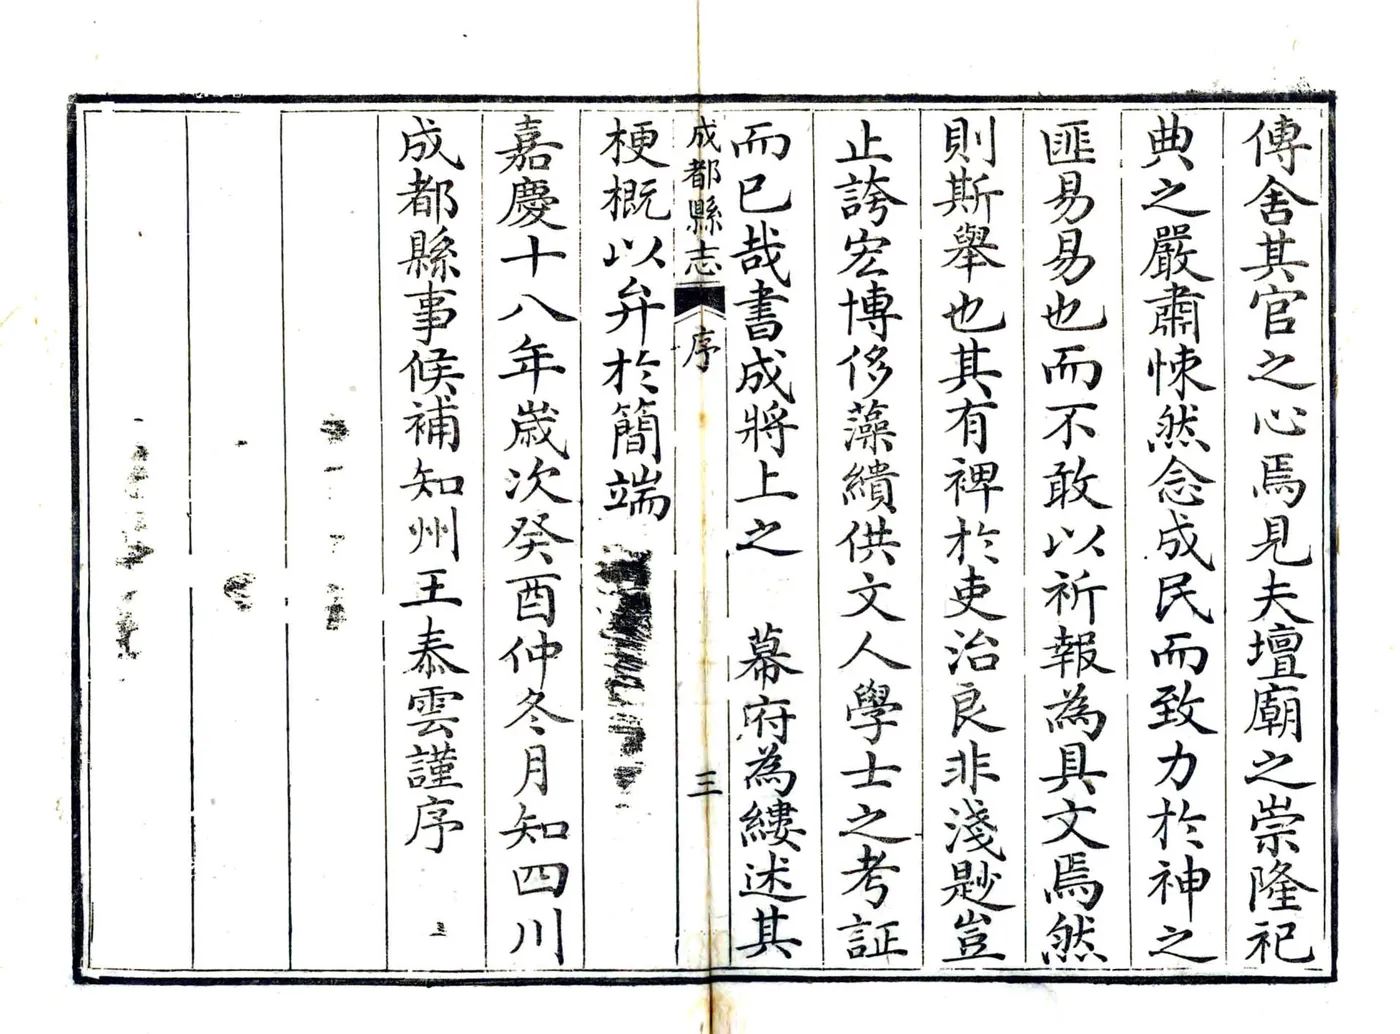 傳舍其官之心焉見夫壇廟之崇隆祀
典之嚴肅悚然念成民而致力於神之
匪易易也而不敢以祈報為具文焉然
則斯舉也其有裨於吏治良非淺尠豈
止誇宏博侈藻繢供文人學士之考証
而已哉書成將上之　幕府為縷述其
成都縣志　序　三
梗概以弁於簡端
嘉慶十八年歲次癸酉仲冬月知四川
成都縣事候補知州王泰雲謹序